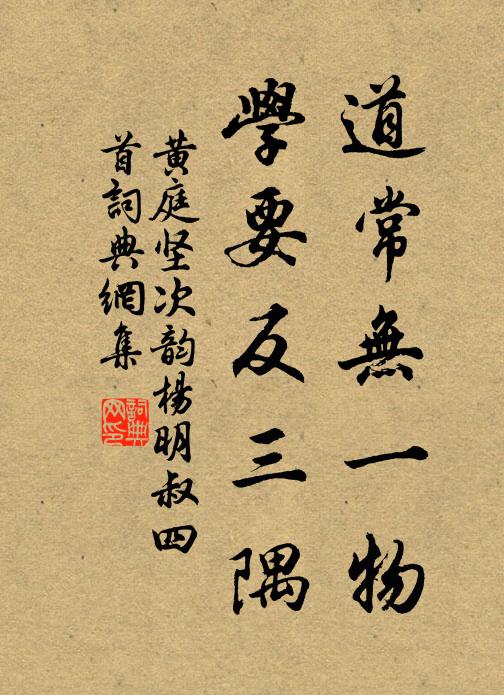 道常無一物
學要反三隅
黄庭坚次韵楊明叔四
首詞典網集
詞典
网印